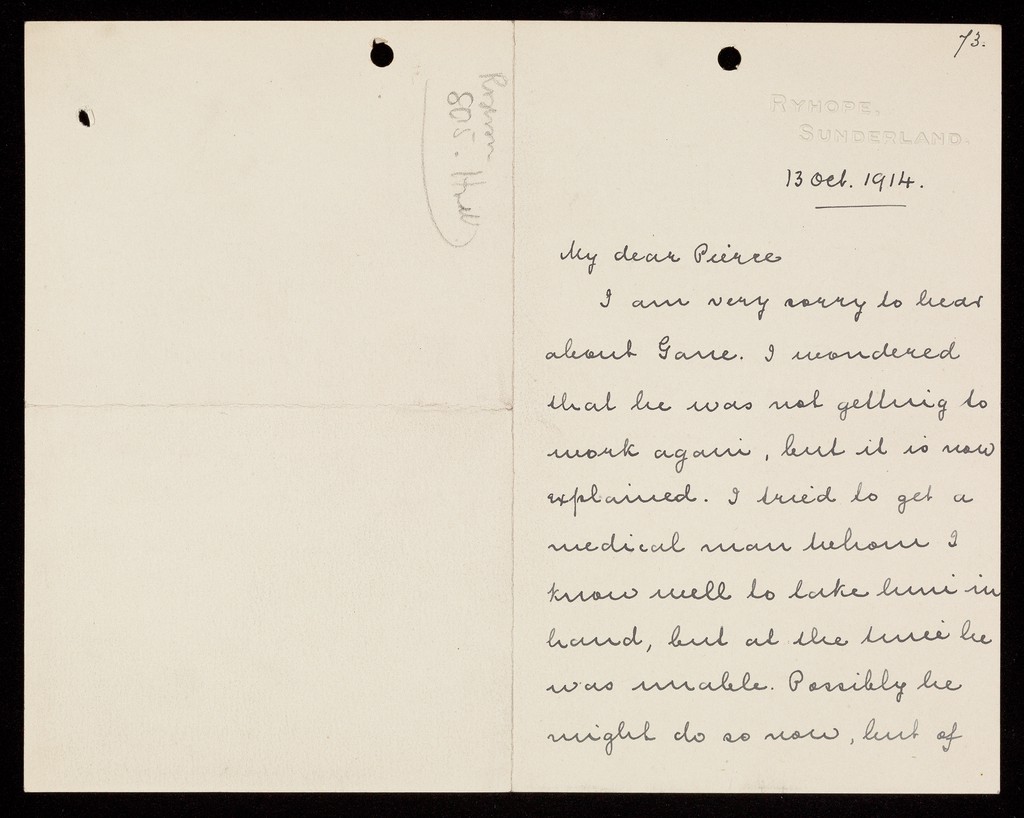 73.
RYHOPE,
SUNDERLAND.
13 Oct. 1914.
My dear Pierce
I am very sorry to hear
about Gane. I wondered
that he was not getting to
work again, but it is now
explained. I tried to get a
medical man whom I
know well to take him in
hand, but at the time he
was unable. Possibly he
might do so now, but of
805.